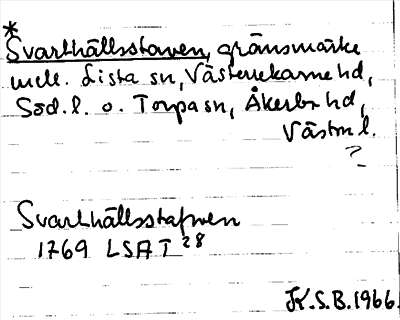 *
Svarthällsstaven, gränsmärke
mell. Lista sn, Västerrekarne hd,
Söd.l. o. Torpa sn, Åkerbo hd,
Västm l.
?
Svarthällsstafwen
1769 LSA T 28
K.S.B. 1966.